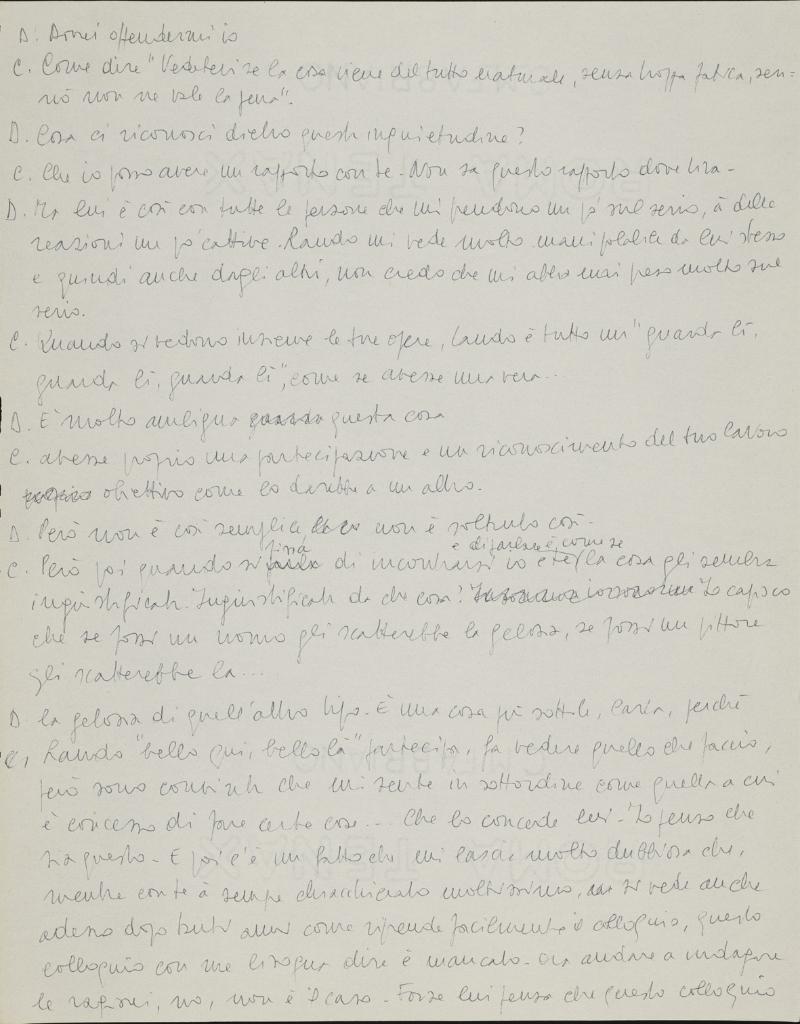 D. Dovrei offendermi io
C. Come dire "Vedetevi se la cosa viene del tutto naturale, senza troppa fatica, sen=
nò non ne vale la pena".
D. Cosa ci riconosci dietro questa inquietudine?
C. Che io posso avere un rapporto con te. Non sa questo rapporto dove tira.
D. Ma lui è così con tutte le persone che mi prendono un pò sul serio, à delle
reazioni un pò cattive. Lando mi vede molto manipolabile da lui stesso
e quindi anche dagli altri, non credo che mi abbia mai preso molto sul
serio.
C. Quando si vedono insieme le tue opere, Lando è tutto un "guarda lì,
guarda lì, guarda lì", come se avesse una vera...
D. È molto ambigua questa cosa
C. avesse proprio una partecipazione e un riconoscimento del tuo lavoro
obiettivo come lo darebbe a un altro.
D. Però non è così semplice, non è soltanto così.
C. Però poi quando si fissa di incontrarsi io e te e di parlare è come se la cosa gli sembra
ingiustificata. Ingiustificata da che cosa? Io capisco
che se fossi un uomo gli scatterebbe la gelosia, se fossi un pittore
gli scatterebbe la...
D. la gelosia di quell'altro tipo. È una cosa più sottile, Carla, perché
C. Lando "bello qui, bello là" partecipa, fa vedere quello che faccio,
però sono convinta che mi sente in sottordine come quella a cui
è concesso di fare certe cose... Che lo concede lui. Io penso che
sia questo. E poi c'è un fatto che mi lascia molto dubbiosa che,
mentre con te à sempre chiacchierato moltissimo, si vede anche
adesso dopo tanti anni come riprende facilmente il colloquio, questo
colloquio con me bisogna dire è mancato. Ora andare a indagare
le ragioni, no, non è il caso. Forse lui pensa che questo colloquio